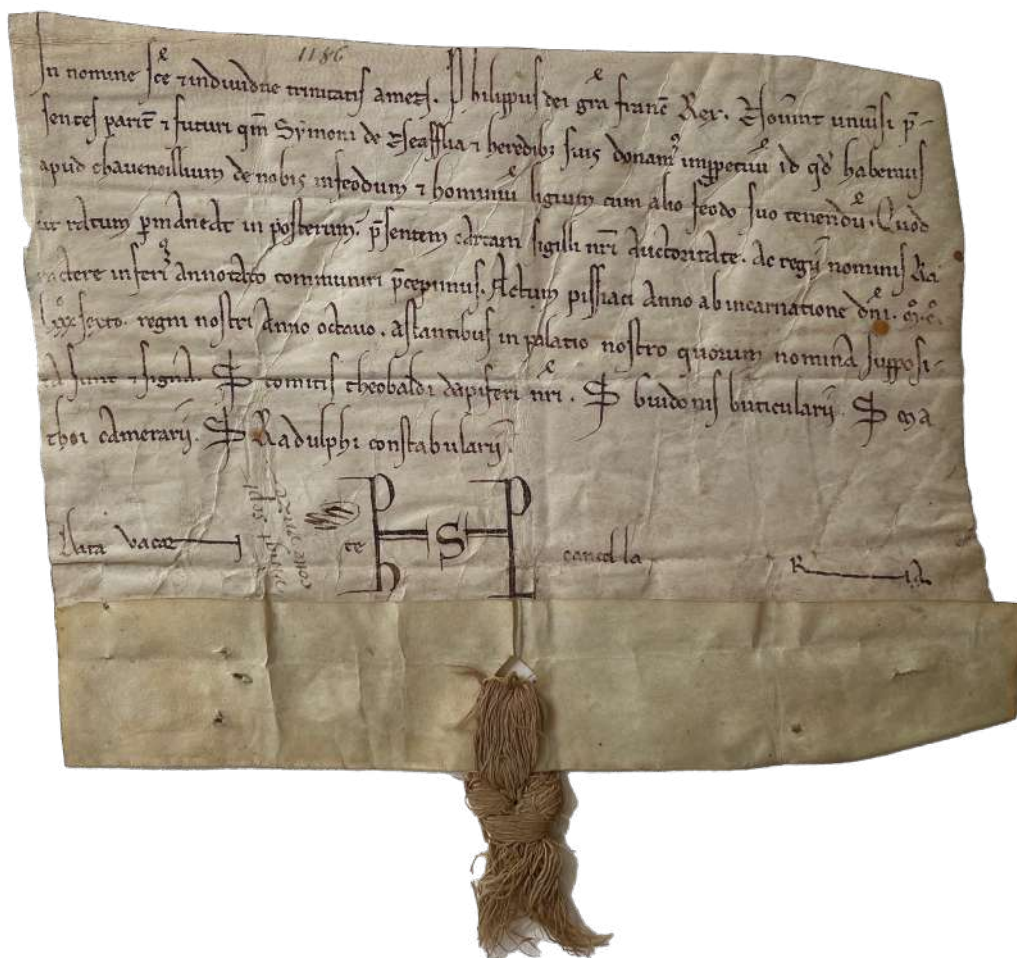 1186
In nomine sce ⁊ individue trinitatis amen. Philippus dei gra franc Rex. Noverint universi p̄-
sentes parit̄ ⁊ futuri qm̄ Symoni de ⁊ heredibȝ suis donamꝰ id qd̄ habemus
apud chavencillium de nobis infeodum ⁊ hominiū ligium cum alio feodo suo tenendū. Quod
ut ratum p̄maneat in posterum. p̄sentem cartam sigilli nr̄i auctoritate. ac regii nominis Ka
ractere inferiꝰ annotato communiri p̄cepimus. Actum anno ab incarnatione dn̄i. m̊. c̊.
Lxxx̊ sexto. regni nostri Anno octavo. astantibus in palatio nostro quorum nomina supposi-
ta sunt ⁊ signa. S comitis theobaldi dapiferi nr̄i. S buticularii. S Ma
thei camerarii. S Radulphi constabularii.
Data vacan te PHS PL cancella R ia